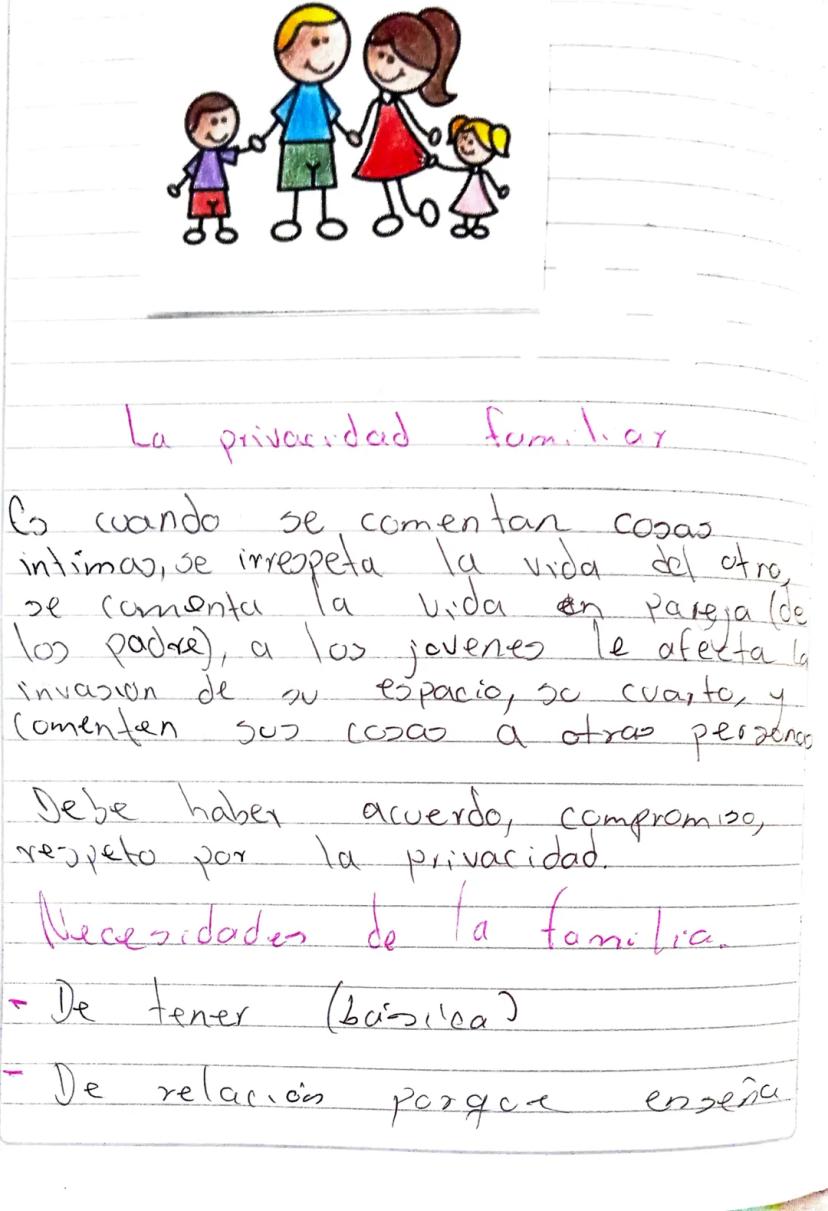 La privacidad familiar
Es cuando se comentan cosas
intimas, se irrespeta la vida del otro,
se comenta la vida en pareja (de
los padre), a los jovenes le afecta la
invasion de su espacio, su cuarto, y
comenten sus cosas a otras personas
Debe haber acuerdo, compromiso,
respeto por la privacidad.
Necesidades de la familia.
- De tener (básica)
- De relación porque enseña